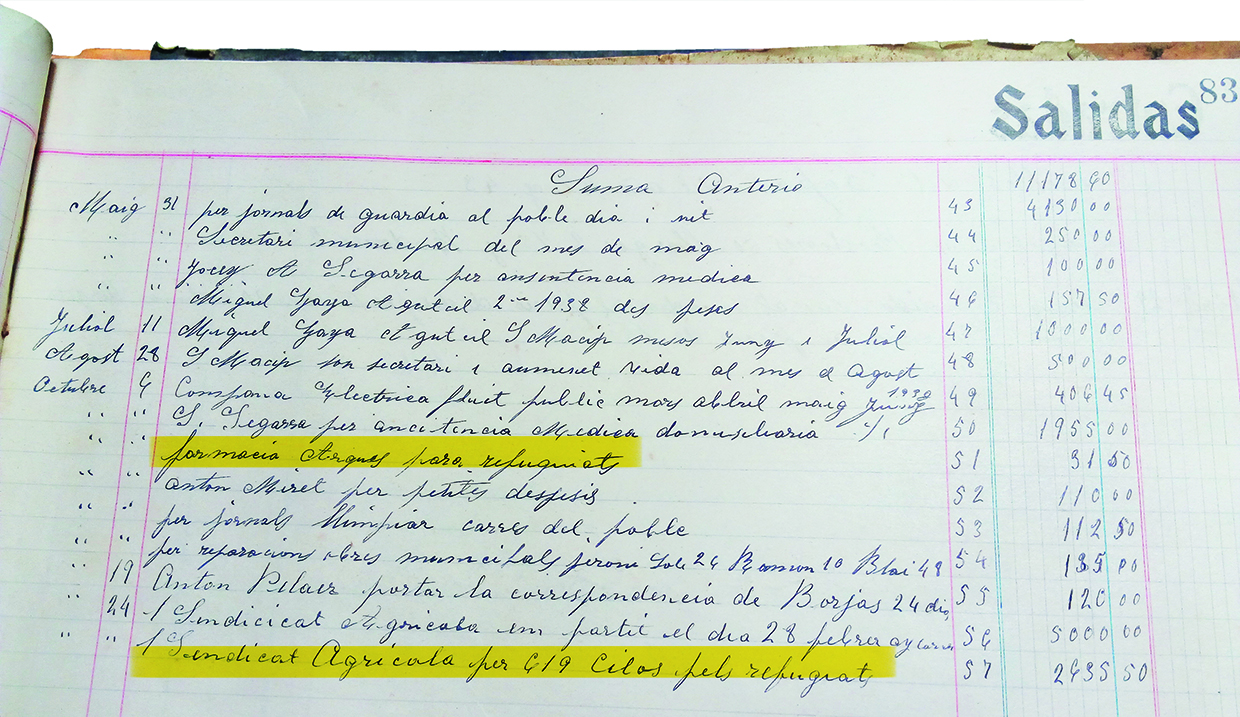 Salidas 83
Suma Anterio 11178 60
Maig 31 per jornals de guardia al poble dia i nit 43 4130 00
" " Secretari municipal del mes de maig 44 250 00
" " Segarra per medica 45 100 00
" " Miguel Gaya 2 1938 des peses 46 157 50
Juliol 11 Miguel Gaya S Macip mesos Juny i Juliol 47 1000 00
Agost 28 S Macip son secretari i vida al mes d Agost 48 500 00
Octubre 6 Electrica fluit public mars abbril maig Juny 1938 49 406 45
" " S. Segarra per ancitencia Medica 50 1955 00
" " farmacia Arques para refuguiats 51 31 50
" " anton Miret per petites despesis 52 110 00
" " per jornals llimpiar carres del poble 53 112 50
" " per reparacions obres municipals 26 Ramon 10 Blai 48 54 135 00
" 19 Anton Pelaez portar la correspondencia de Borjas 24 dia 55 120 00
" 24 1 Sindicicat Agricola em partit el dia 28 febrer 56 5000 00
" " 1 Sindicat Agricola per 619 Cilos pels refugiats 57 2635 50